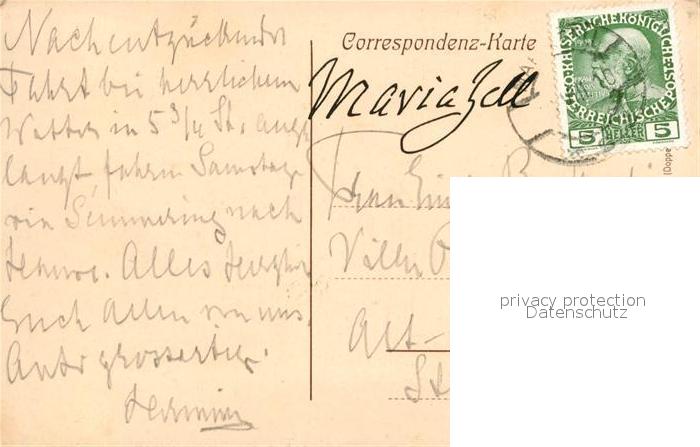 Nach entzückender
Fahrt bei herrlichem
Wetter in 5 3/4 St. ange
langt, fahren Samstag
via Semmering nach
Hause. Alles Herzliche
Euch Allen von uns.
Auto grossartig.
Hermine
Correspondenz-Karte
Mariazell
KAISERLICHE KÖNIGLICHE
ÖSTERREICHISCHE
5 HELLER 5
Frau
Villa
Alt-
St
privacy protection
Datenschutz